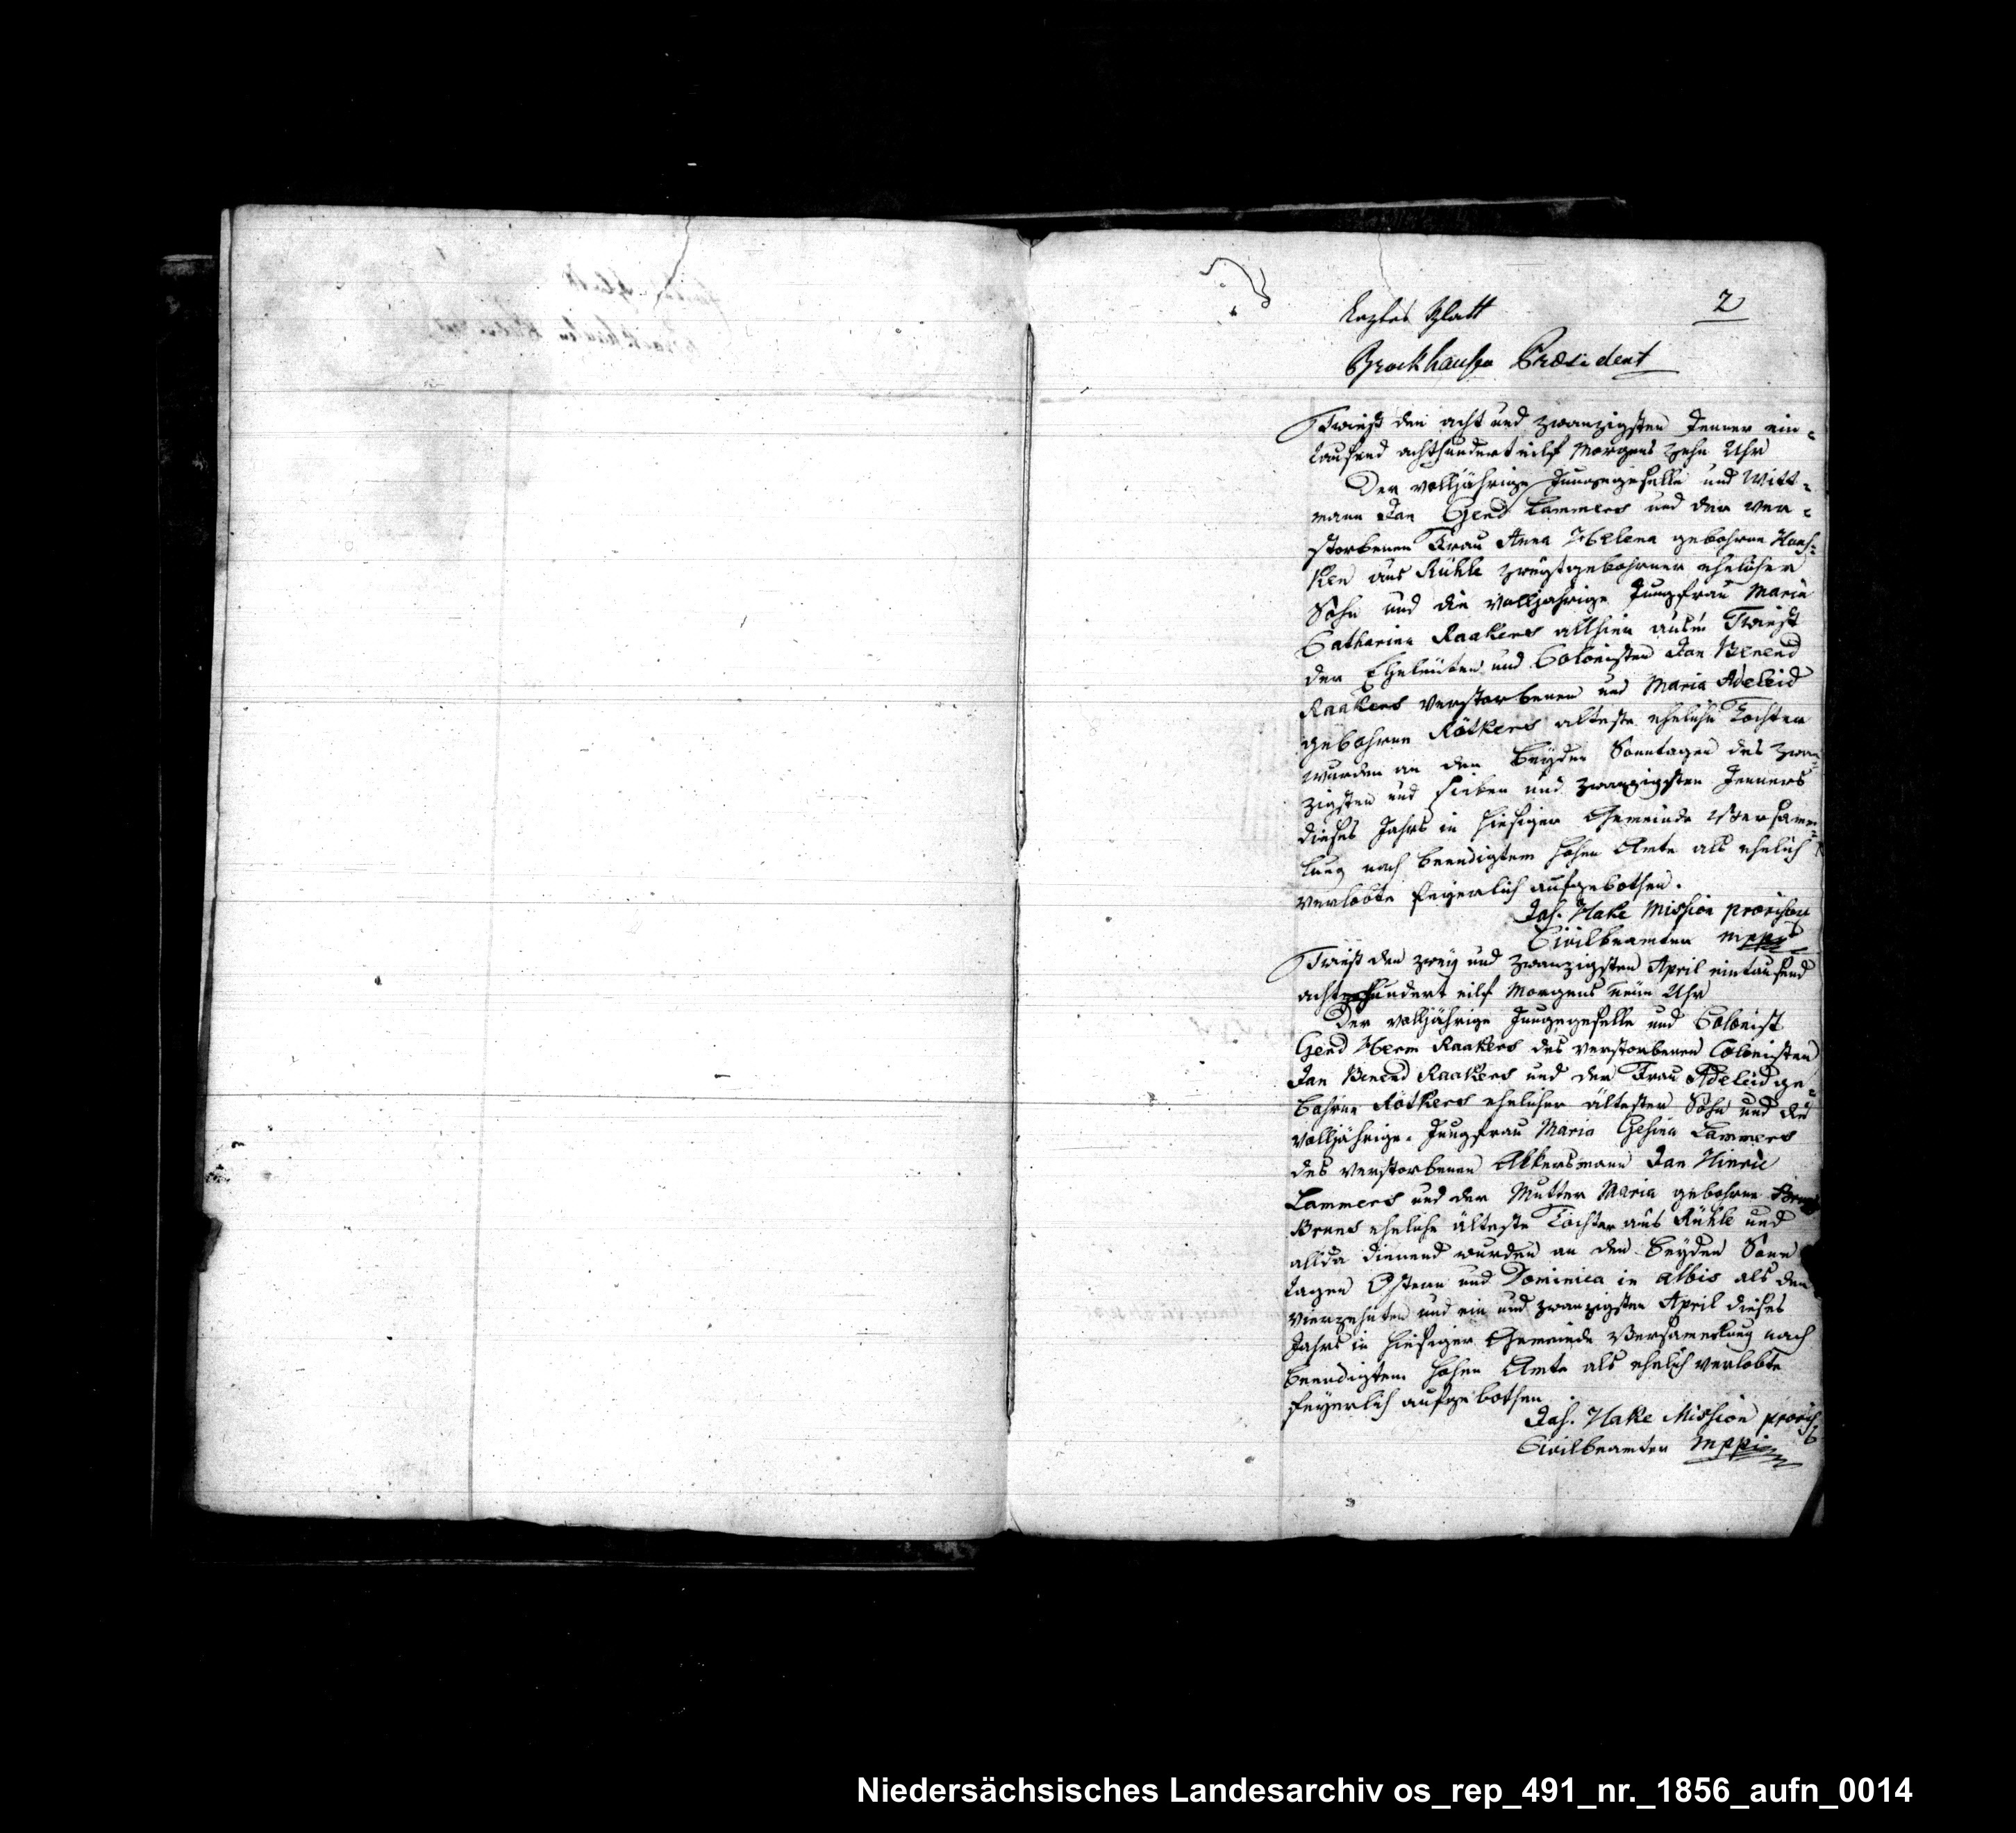 2
Leztes Blatt
Brockhausen Præsident
Twist den acht und zwanzigsten Jenner ein=
tausend achthundert eilf Morgens zehn Uhr
Der volljährige Junggeselle und Witt=
mann Jan Gerd Lammers und der ver=
storbenen Frau Anna Helena gebohrne
aus Rühle gebohrner ehelicher
Sohn und die volljahrige Jungfrau Maria
Catharina Raakers allhier aus'm Twist
der Eheleuten und Colonisten Jan Berend
Raakers verstorbenen und Maria Adeleid
gebohrne Rötkers alteste eheliche Tochter
wurden an den beyden Sonntagen des zwan=
zigsten und sieben und zwanzigsten Jenners
dieses Jahrs in hiesiger Gemeinde Versamm=
lung nach beendigtem hohen Amte als ehelich
verlobte feyerlich aufgebothen.
Jos. Hake Mission provisor
Civilbeamter mppr
Twist den zwey und zwanzigsten April eintausend
achthundert eilf Morgens neun Uhr
Der volljährige Junggeselle und Colonist
Gerd Herm Raakers des verstorbenen Colonisten
Jan Berend Raakers und der Frau Adeleid ge=
bohrne Rötkers ehelicher ältester Sohn und die
volljährige Jungfrau Maria Gesina Lammers
des verstorbenen Akkersmann Jan Hinric
Lammers und der Mutter Maria gebohrne
Brens eheliche älteste Tochter aus Rühle und
allda dienend wurden an den beyden Sonn
tagen Ostern und Dominica in albis als den
vierzehnten und ein und zwanzigsten April dieses
Jahrs in hiesiger Gemeinde Versamelung nach
beendigtem hohen Amte als ehelich verlobte
feyerlich aufgebothen
Jos. Hake Mission provis
Civilbeamter mppr
Niedersächsisches Landesarchiv os_rep_491_nr._1856_aufn_0014